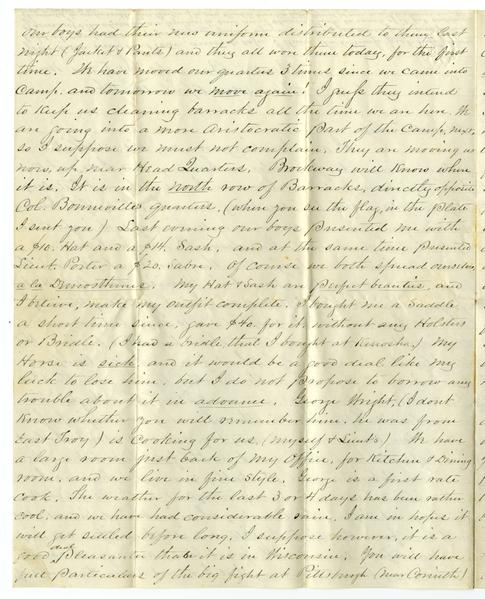 our boys had their new uniform distributed to them last
night (Jacket & Pants) and they all wore them today, for the first
time. We have moved our quarters 3 times since we came into
Camp, and tomorrow we move again! I guess they intend
to keep us cleaning barracks all the time we are here. We
are going into a more Aristocratic part of the Camp, now,
so I suppose we must not complain. They are moving us
now, up near Head Quarters. Brockway will know where
it is. It is in the north row of Barracks, directly opposite
Col. Bonneville's quarters, (when you see the flag, in the plate
I sent you) Last evening our boys presented me with
a $10. Hat and a $14. Sash, and at the same time presented
Lieut. Porter a $20. Sabre. Of course we both spread ourselves
a la Demosthenes. My Hat & Sash are perfect beauties, and
I believe, make my outfit complete. I bought me a Saddle
a short time since, gave $40. for it, without any Holsters
or Bridle. (I had a bridle that I bought at Kenosha.) My
Horse is sick and it would be a good deal like my
luck to lose him, but I do not propose to borrow any
trouble about it in advance. George Wright, (I dont
know whether you will remember him, he was from
East Troy) is Cooking for us, (myself & Lieuts) We have
a large room just back of my Office, for Kitchen & Dining
room, and we live in fine style. George is a first rate
cook. The weather for the last 3 or 4 days has been rather
cool, and we have had considerable rain. I am in hopes it
will get settled before long. I suppose however, it is a
good deal pleasanter than it is in Wisconsin. You will have
full particulars of the big fight at Pittsburgh (near Corinth)